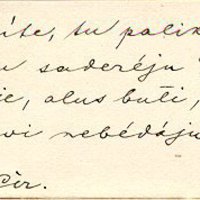 íte, tu palik
u saderēju
ie, alus buti,
vi nebēdāju
Cēr.